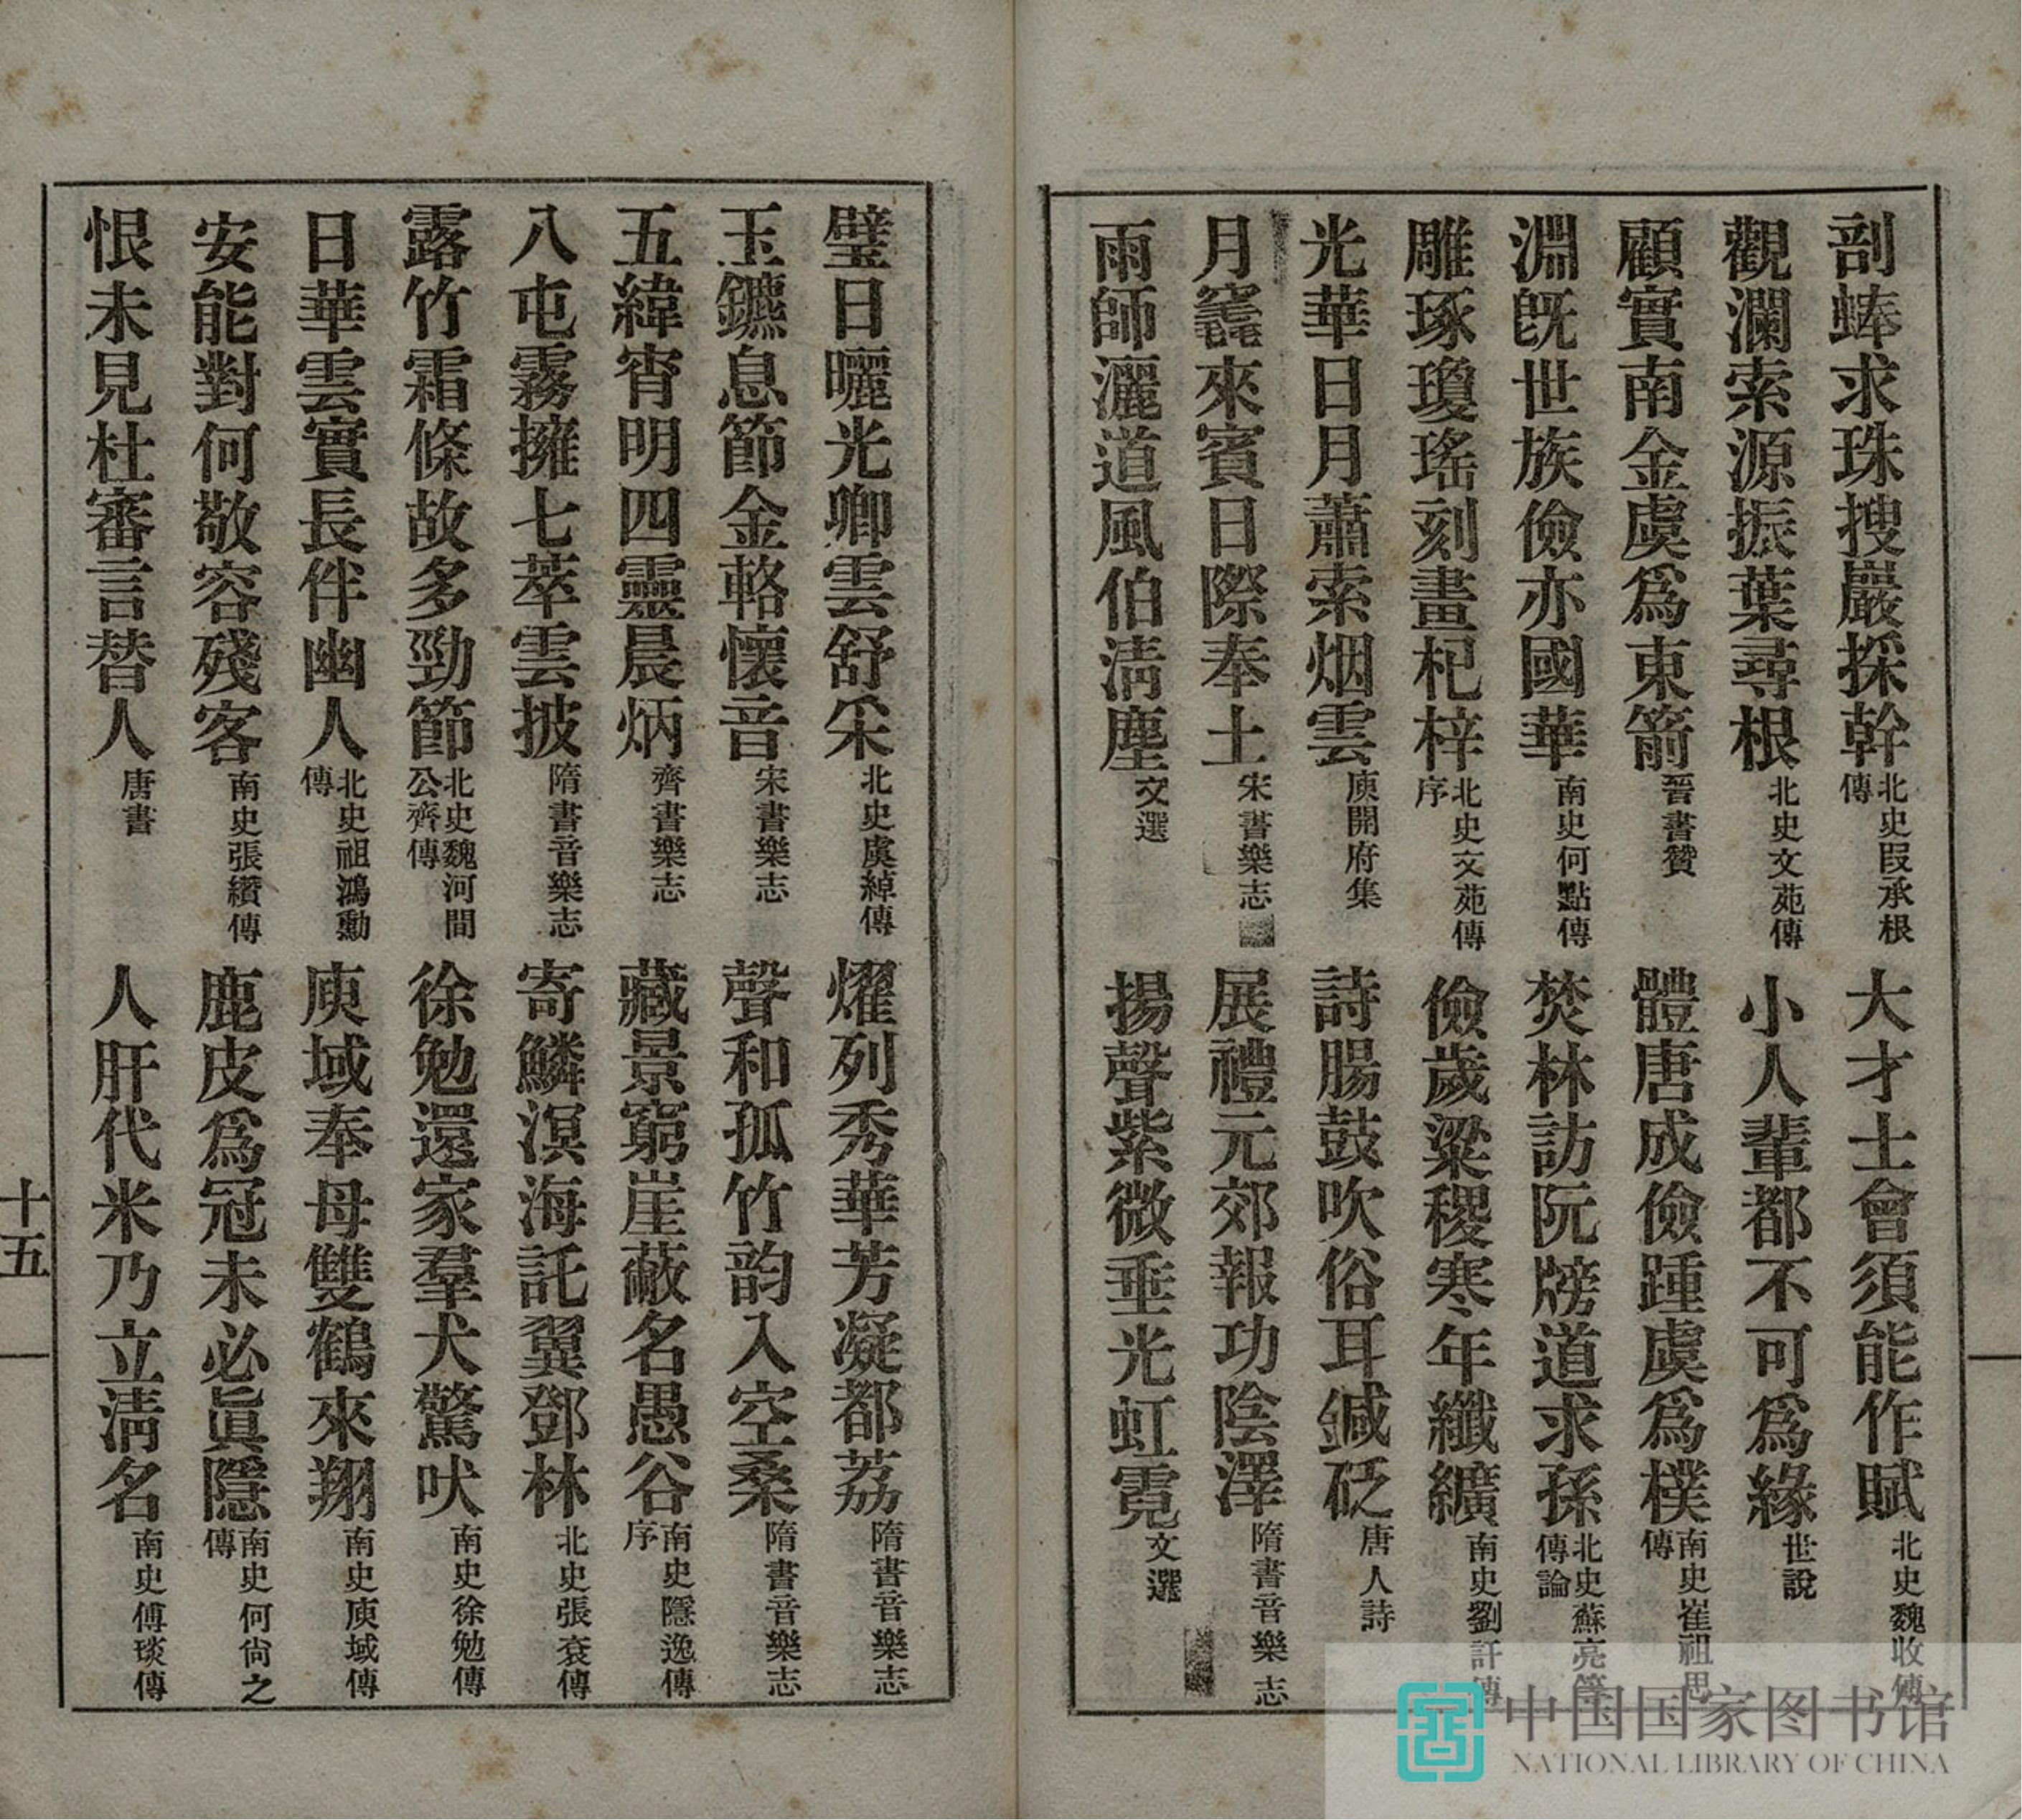 剖蜯求珠搜巖採幹 北史段承根傳 大才士會須能作賦 北史魏收傳
觀瀾索源振葉尋根 北史文苑傳 小人輩都不可爲緣 世說
顧實南金虞爲東箭 晉書贊 體唐成儉踵虞爲樸 南史崔祖思傳
淵旣世族儉亦國華 南史何點傳 焚林訪阮牓道求孫 北史蘇亮等傳論
雕琢瓊瑤刻畫杞梓 北史文苑傳序 儉歲粱稷寒年纖纊 南史劉訏傳
光華日月蕭索烟雲 庾開府集 詩腸鼓吹俗耳鍼砭 唐人詩
月竁來賓日際奉土 宋書樂志 展禮元郊報功陰澤 隋書音樂志
雨師灑道風伯淸塵 文選 揚聲紫微垂光虹霓 文選
璧日曬光卿雲舒采 北史虞綽傳 燿列秀華芳凝都荔 隋書音樂志
玉鑣息節金輅懷音 宋書樂志 聲和孤竹韵入空桑 隋書音樂志
五緯宵明四靈晨炳 齊書樂志 藏景窮崖蔽名愚谷 南史隱逸傳序
八屯霧擁七萃雲披 隋書音樂志 寄鱗溟海託翼鄧林 北史張袞傳
露竹霜條故多勁節 北史魏河間公齊傳 徐勉還家羣犬驚吠 南史徐勉傳
日華雲實長伴幽人 北史祖鴻勳傳 庾域奉母雙鶴來翔 南史庾域傳
安能對何敬容殘客 南史張纘傳 鹿皮爲冠未必眞隱 南史何尙之傳
恨未見杜審言替人 唐書 人肝代米乃立淸名 南史傅琰傳
十五
中国国家图书馆
NATIONAL LIBRARY OF CHINA